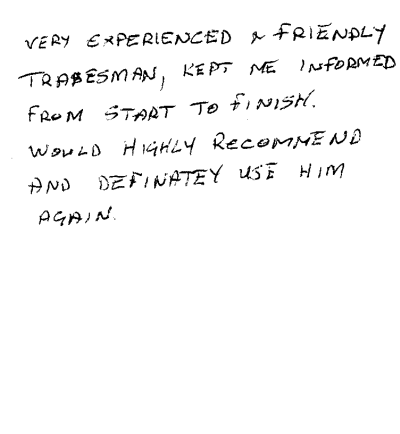 VERY EXPERIENCED & FRIENDLY
TRADESMAN, KEPT ME INFORMED
FROM START TO FINISH.
WOULD HIGHLY RECOMMEND
AND DEFINATEY USE HIM
AGAIN.